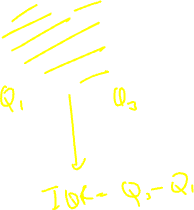 Q₁ Q₃
IQR = Q₃ - Q₁